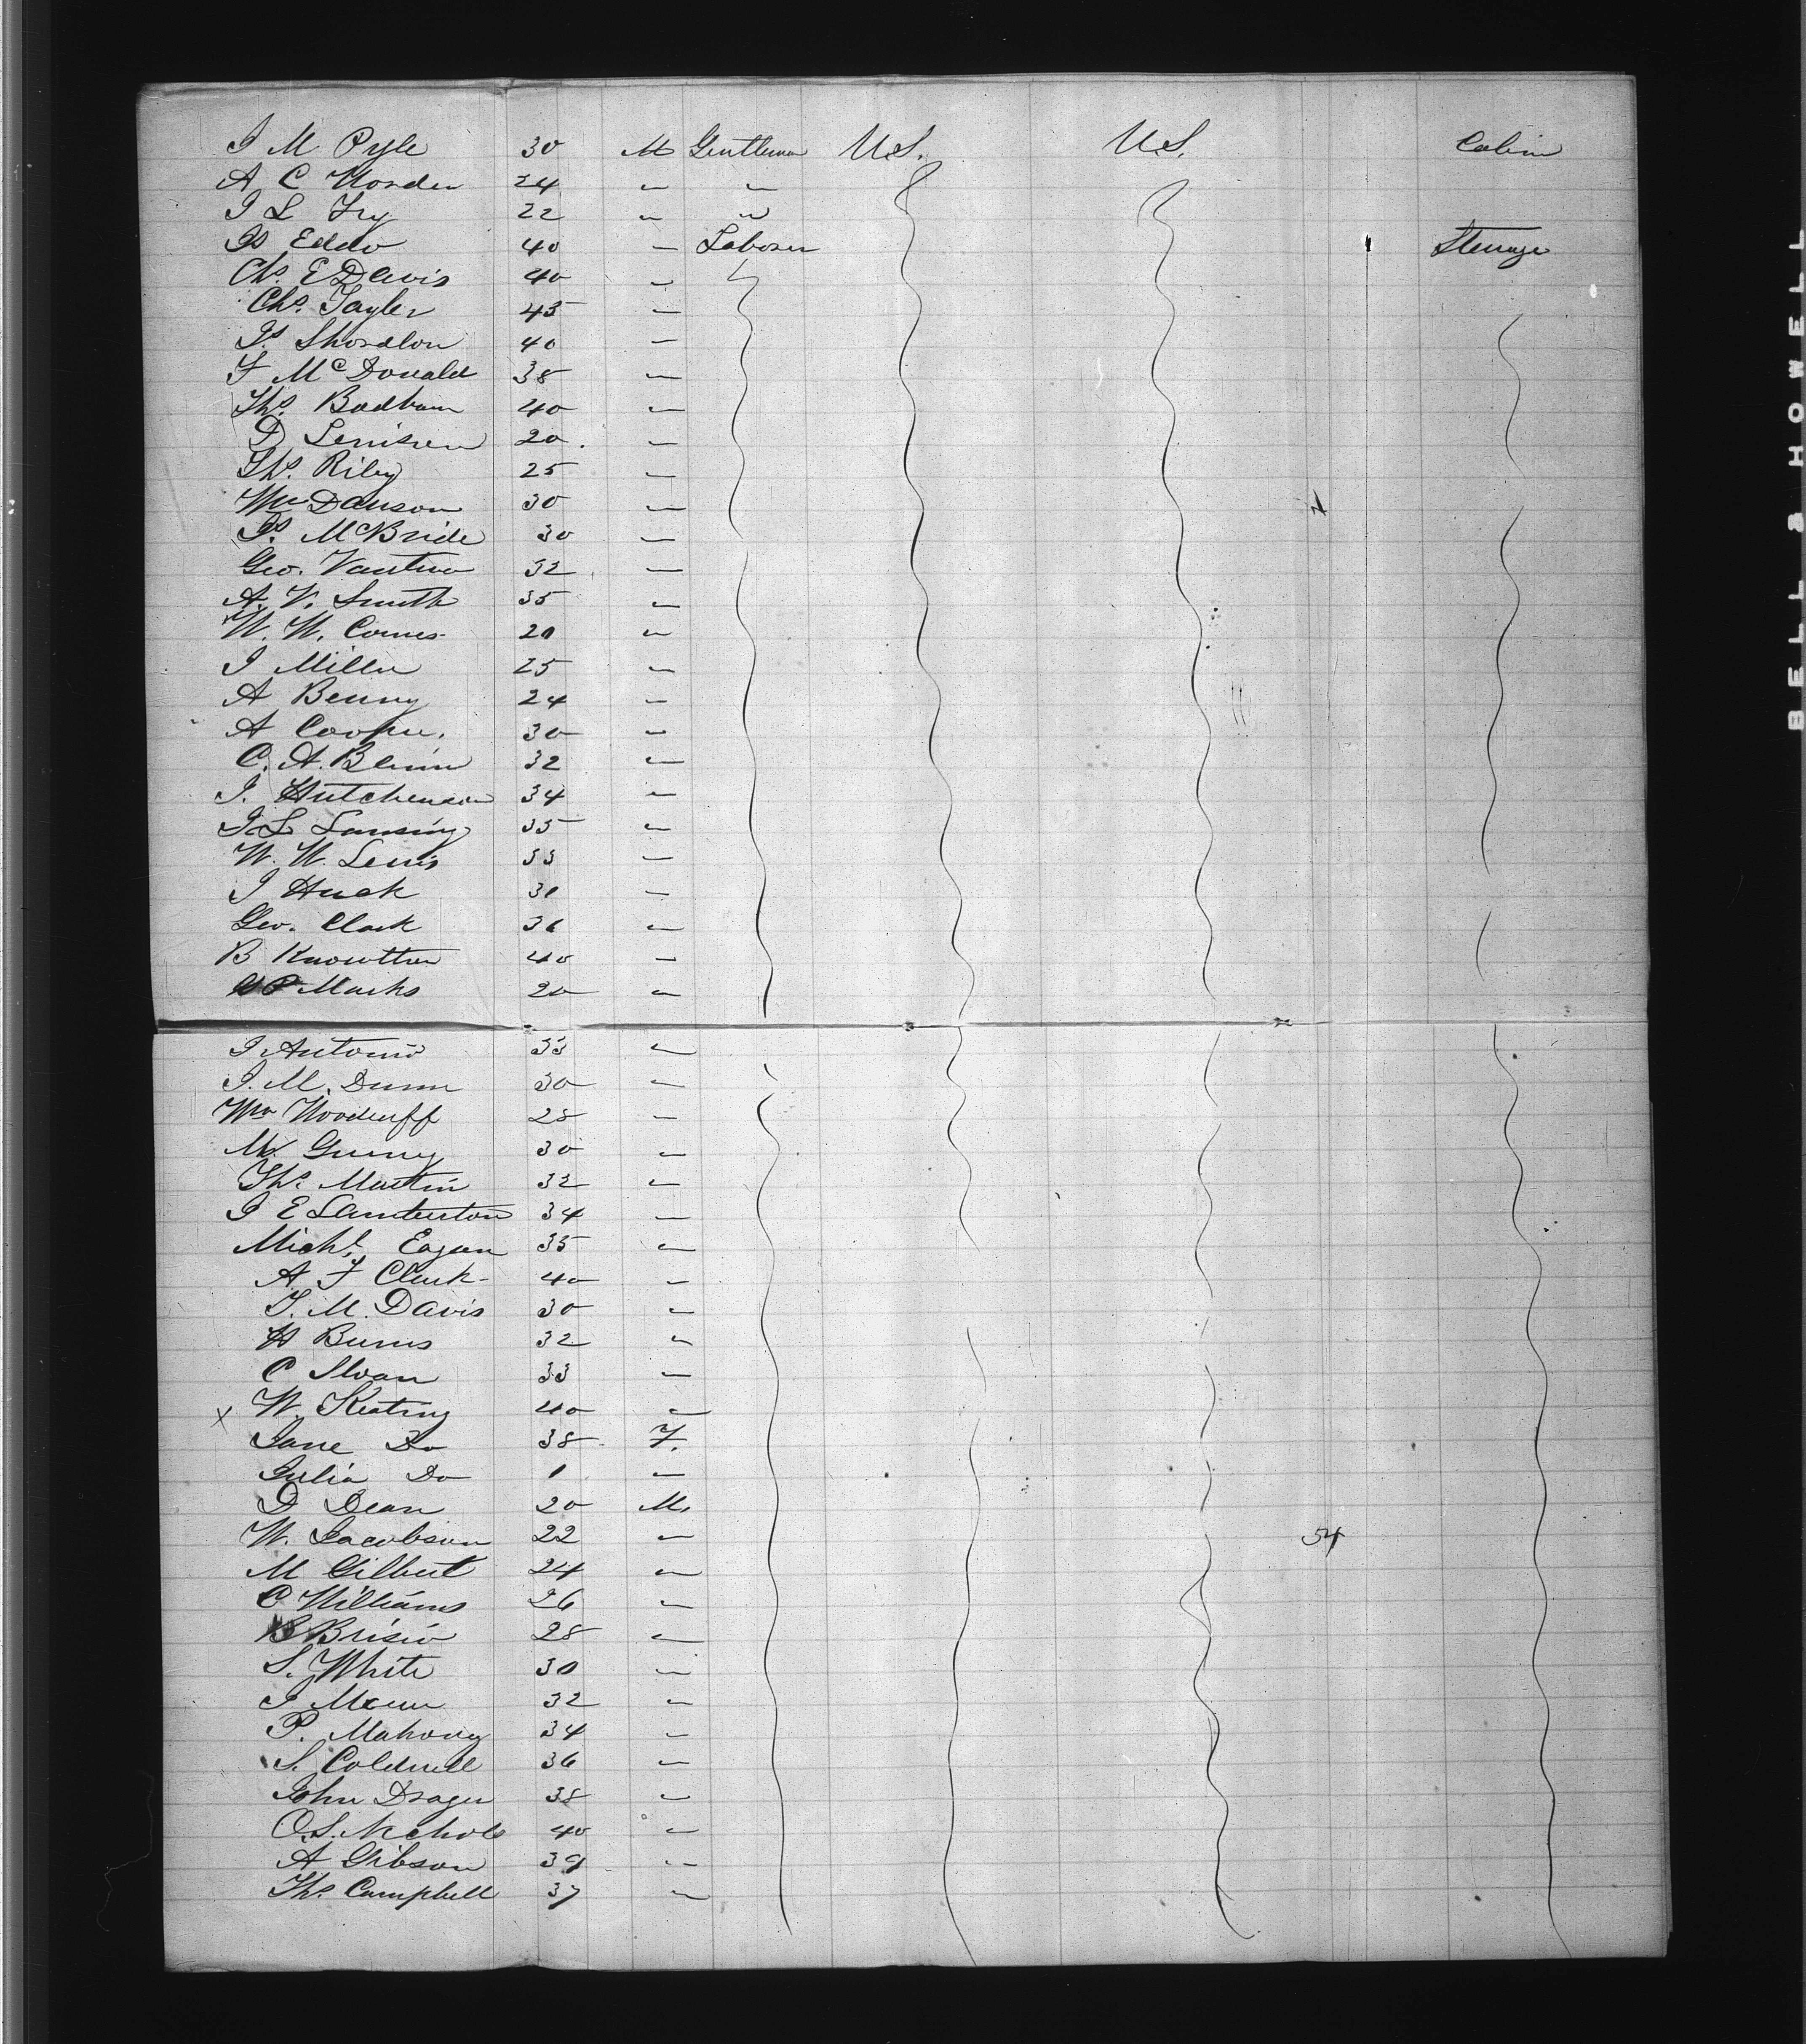 J M Pyle 30 M Gentleman U.S. U.S. Cabin
A C Worden 24 " "
J L Fry 22 " "
Js Eddo 40 " Laborer Steerage
Chs. E Davis 40 "
Chs. Tayler 45 "
Js. 40 "
F McDonald 38 "
Ths. Badham 40 "
D 20 "
Ths. Riley 25 "
Wm Dawson 30 "
Js. McBride 30 "
Geo. 32 "
A. V. Smith 35 "
W. W. Comes 20 "
J Miller 25 "
A Benny 24 "
A Cooper. 30 "
C. A. 32 "
J. Hutchenson 34 "
J L Lansing 35 "
W. W. Lewis 33 "
J Huck 31 "
Geo. Clark 36 "
B Knowlton 40 "
Marks 20 "
J Antonio 33 "
J. M. Dunn 30 "
Wm Woodruff 28 "
M. 30 "
Ths. Martin 32 "
J E Lamberton 34 "
Michl. Eagan 35 "
A. F Clark 40 "
T. M. Davis 30 "
H Burns 32 "
C Sloan 33 "
x W. Keating 40 "
Jane Do 38 F.
Julia Do 1 "
D Dean 20 M.
W. Jacobson 22 " 54
M Gilbert 24 "
C Williams 26 "
B 28 "
S. White 30 "
J Mann 32 "
P. Mahony 34 "
S. Coldwell 36 "
John Drager 38 "
O. S. Nichols 40 "
A Gibson 39 "
Ths. Campbell 37 "
BELL & HOWELL